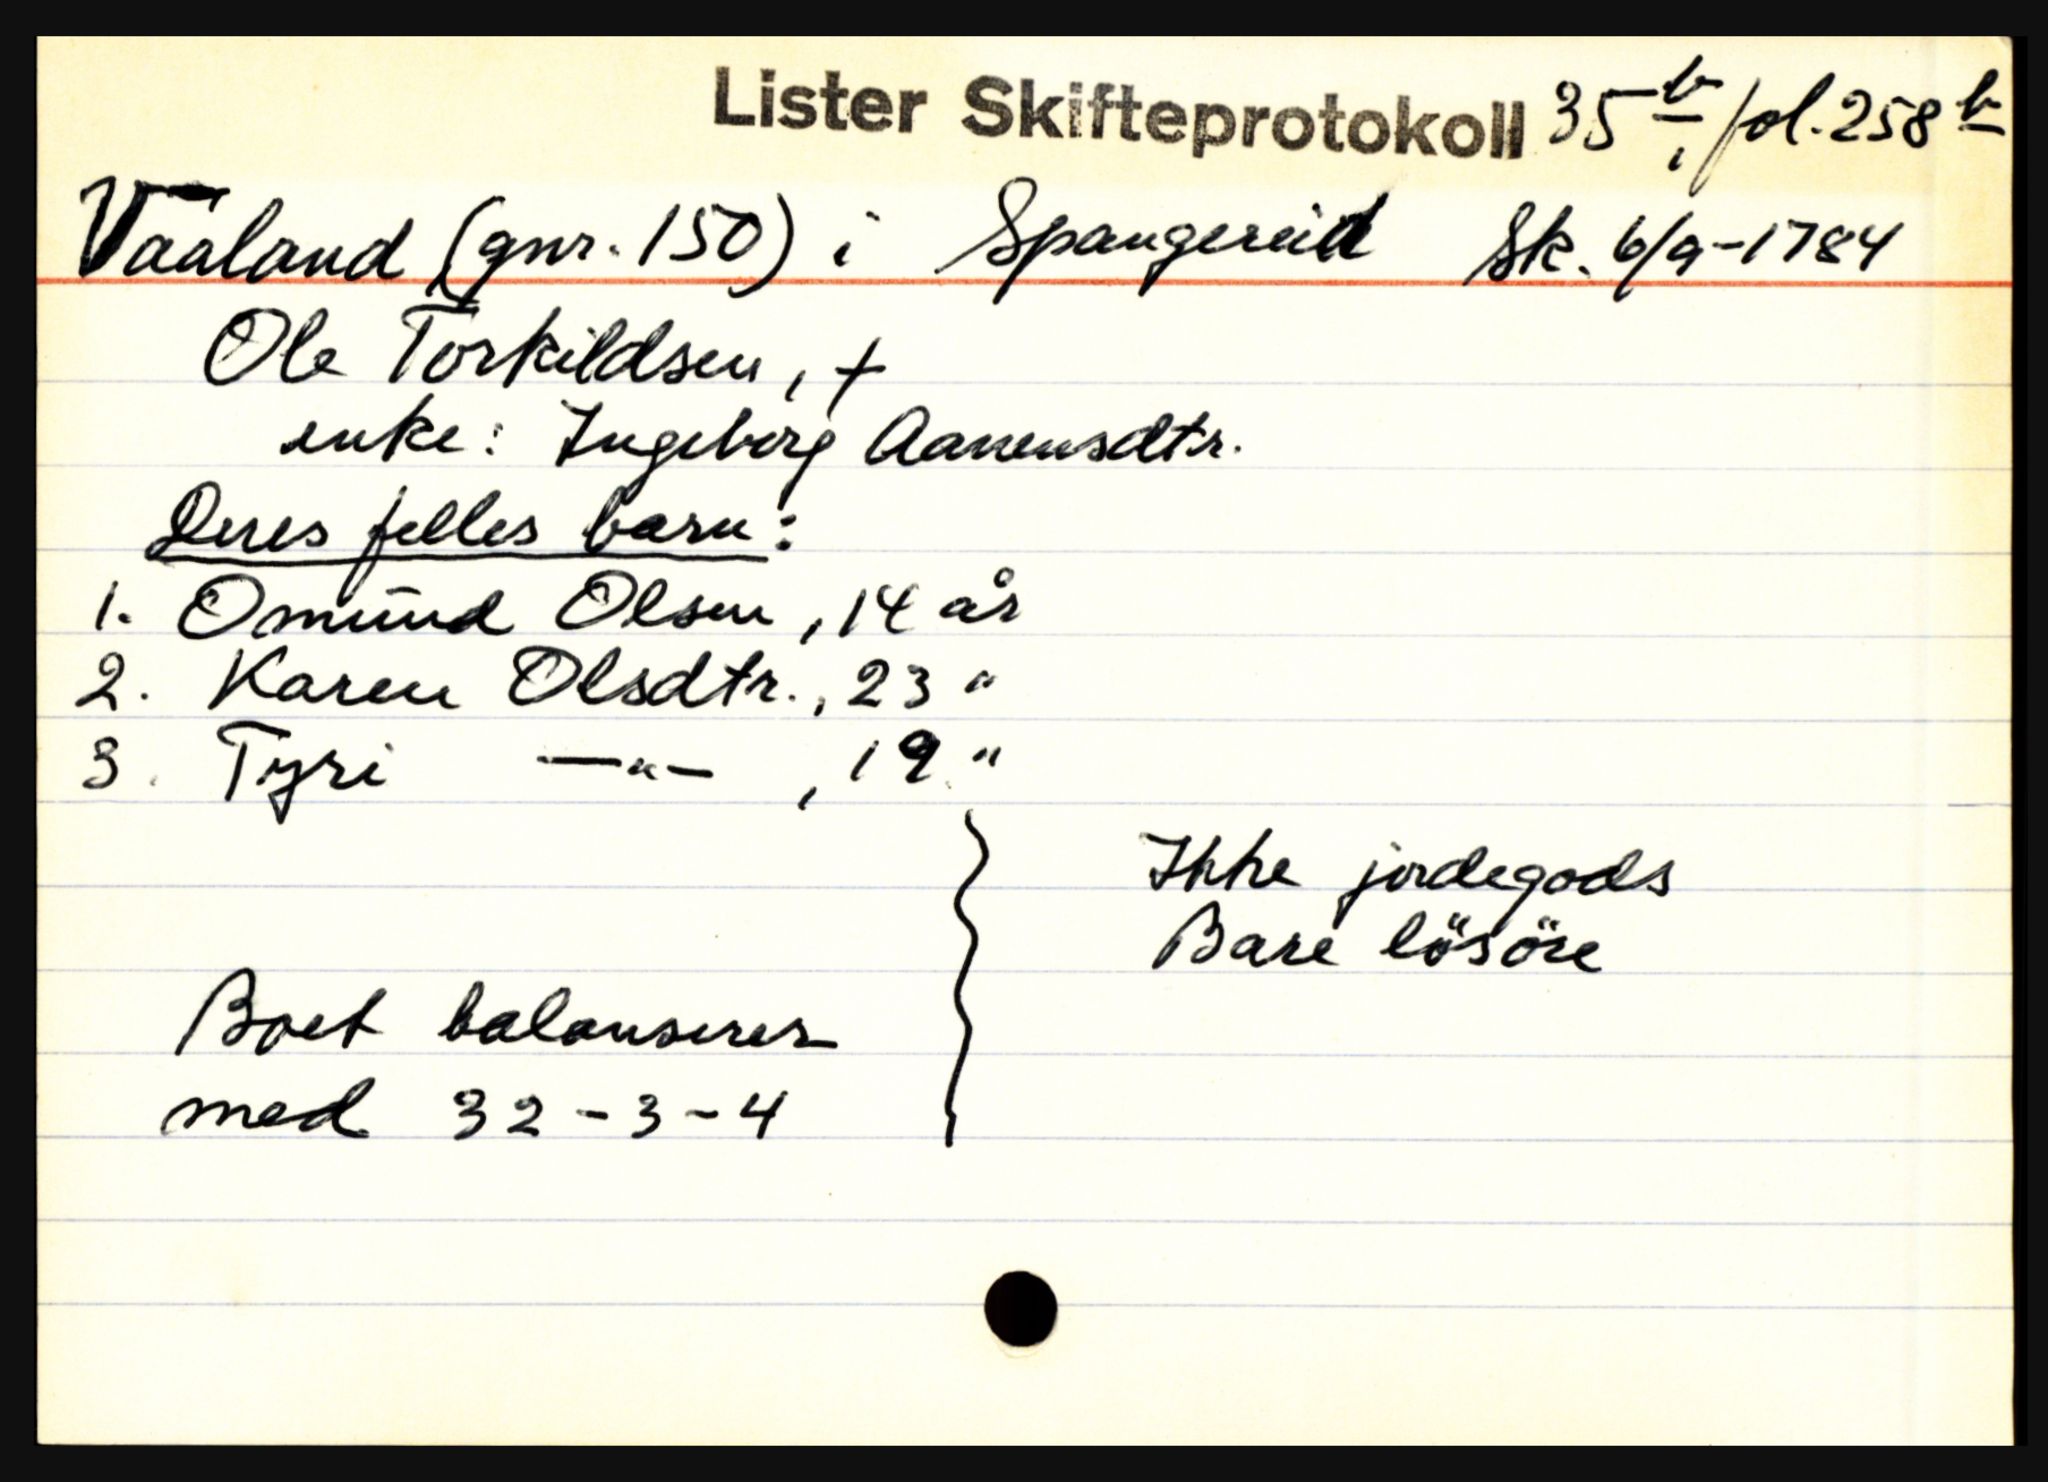 Lister Skifteprotokoll 35b, fol. 258b
Vaaland (gnr. 150) i Spangereid Sk. 6/9-1784
Ole Torkildsen, +
enke: Ingeborg Aanensdtr.
Deres felles barn:
1. Omund Olsen, 14 år
2. Karen Olsdtr., 23 "
3. Tyri —"—, 19 "
Ikke jordegods
Bare lösöre
Boet balanserer
med 32-3-4